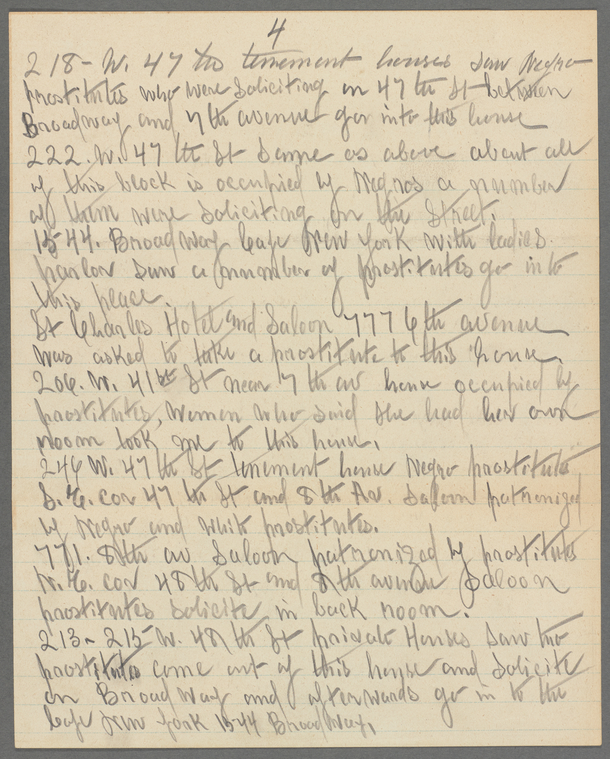 4
218 - W. 47 th tenement houses saw Negro
prostitutes who were soliciting on 47 th St between
Broadway and 7th avenue go into this house
222. W. 47 th St Same as above about all
of this block is occupied by Negros a number
of them were soliciting on the street.
1544. Broadway Cafe New York with ladies
parlor saw a number of prostitutes go into
this place.
St Charles Hotel and Saloon 777 6th avenue
was asked to take a prostitute to this house.
206. W. 41st St near 7 th av house occupied by
prostitutes, women who said she had her own
room took me to this house.
246 W. 47 th St tenement house Negro prostitutes
S. E. cor 47 th St and 8th Av. Saloon patronized
by Negro and white prostitutes.
771. 8th av Saloon patronized by prostitutes
N. E. cor 48th St and 8th avenue Saloon
prostitutes solicite in back room.
213 - 215 W. 48 th St private Houses saw two
prostitutes come out of this house and solicite
on Broadway and afterwards go in to the
Cafe New York 1544 Broadway.